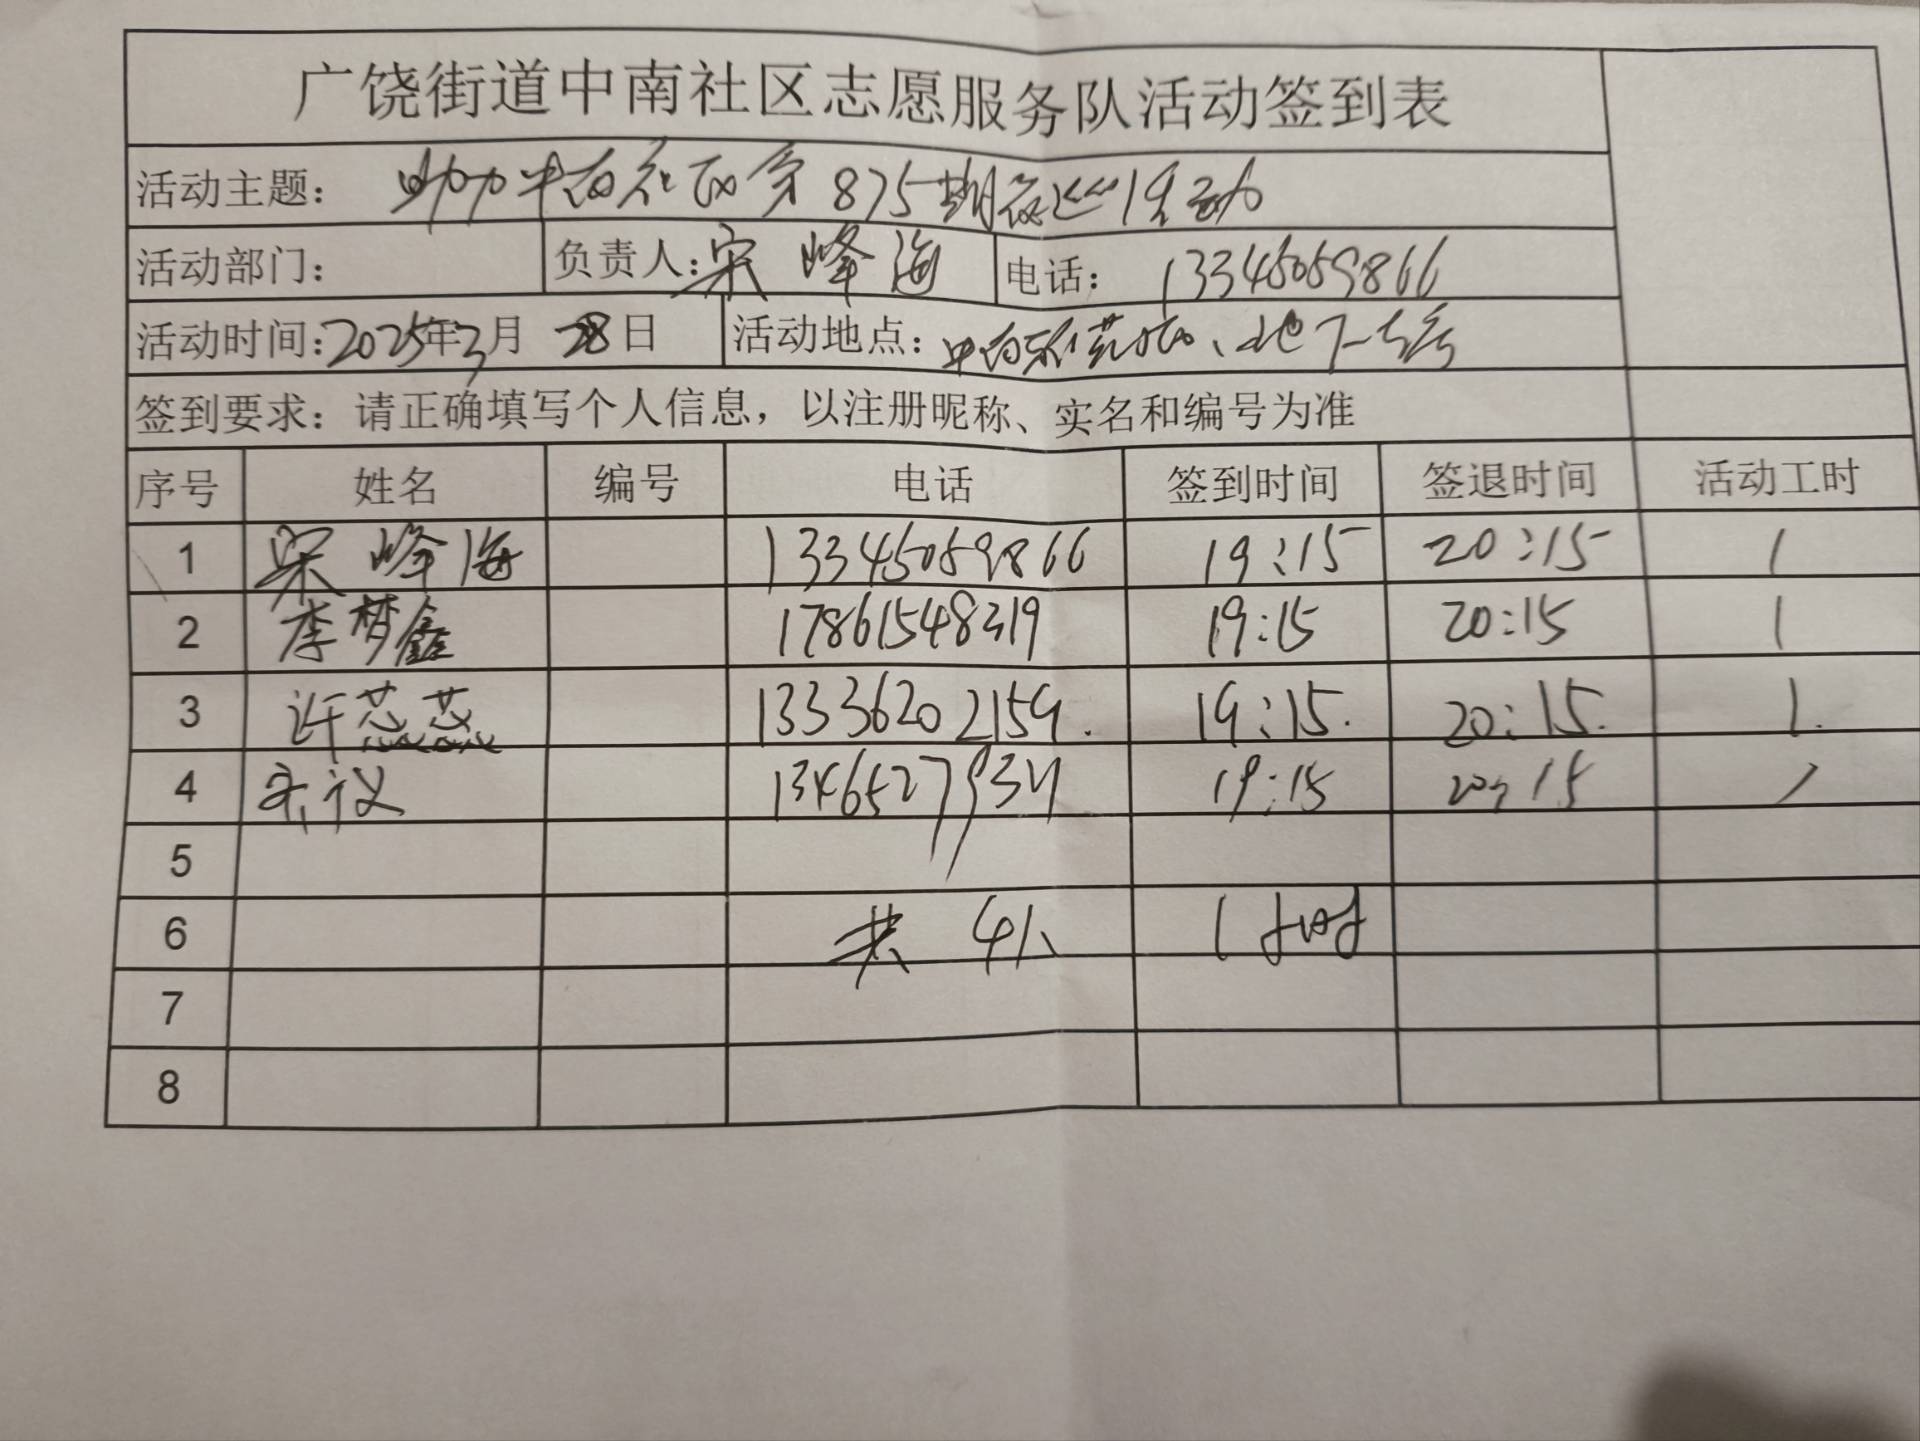 广饶街道中南社区志愿服务队活动签到表
活动主题： 助力中南社区第875期夜巡活动
活动部门： 负责人：宋峰海 电话： 13345059866
活动时间：2025年3月28日 活动地点：中南
签到要求：请正确填写个人信息，以注册昵称、实名和编号为准
序号 姓名 编号 电话 签到时间 签退时间 活动工时
1 宋峰海 13345059866 19:15 20:15 1
2 李梦鑫 17861548319 19:15 20:15 1
3 许蕊蕊 13336202159. 19:15. 20:15. 1.
4 19:15 20:15 1
5
6 共 4人 1小时
7
8